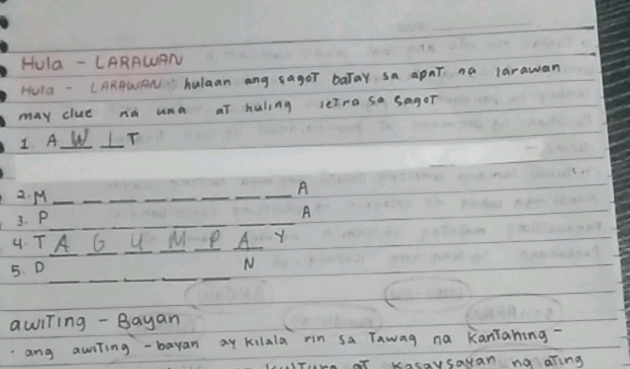 Hula - LARAWAN
Hula - LARAWAN : hulaan ang sagot batay sa apat na larawan
may clue na una at huling letra sa sagot
1 A W I T
2. M _ _ _ _ _ _ _ _ A
3. P _ _ _ _ _ _ _ _ A
4. T A G U M P A Y
5. D _ _ _ _ _ N
awiting - Bayan
· ang awiting - bayan ay kilala rin sa Tawag na kantahing -
kultura at kasaysayan ng ating